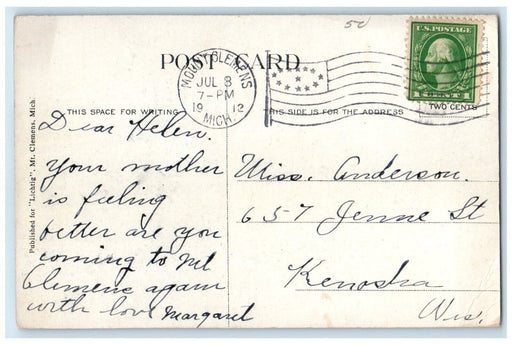 50
POST CARD
U.S. POSTAGE
1 CENT 1
TWO CENTS
MOUNT CLEMENS
JUL 8
7-PM
19 12
MICH.
THIS SPACE FOR WRITING
THIS SIDE IS FOR THE ADDRESS
Published for "Lichtig", Mt. Clemens, Mich.
Dear Helen.
Your mother
is feeling
better are you
coming to Mt
Clemens again
with love Margaret
Miss. Anderson.
657 Jenne St
Kenosha
Wis.